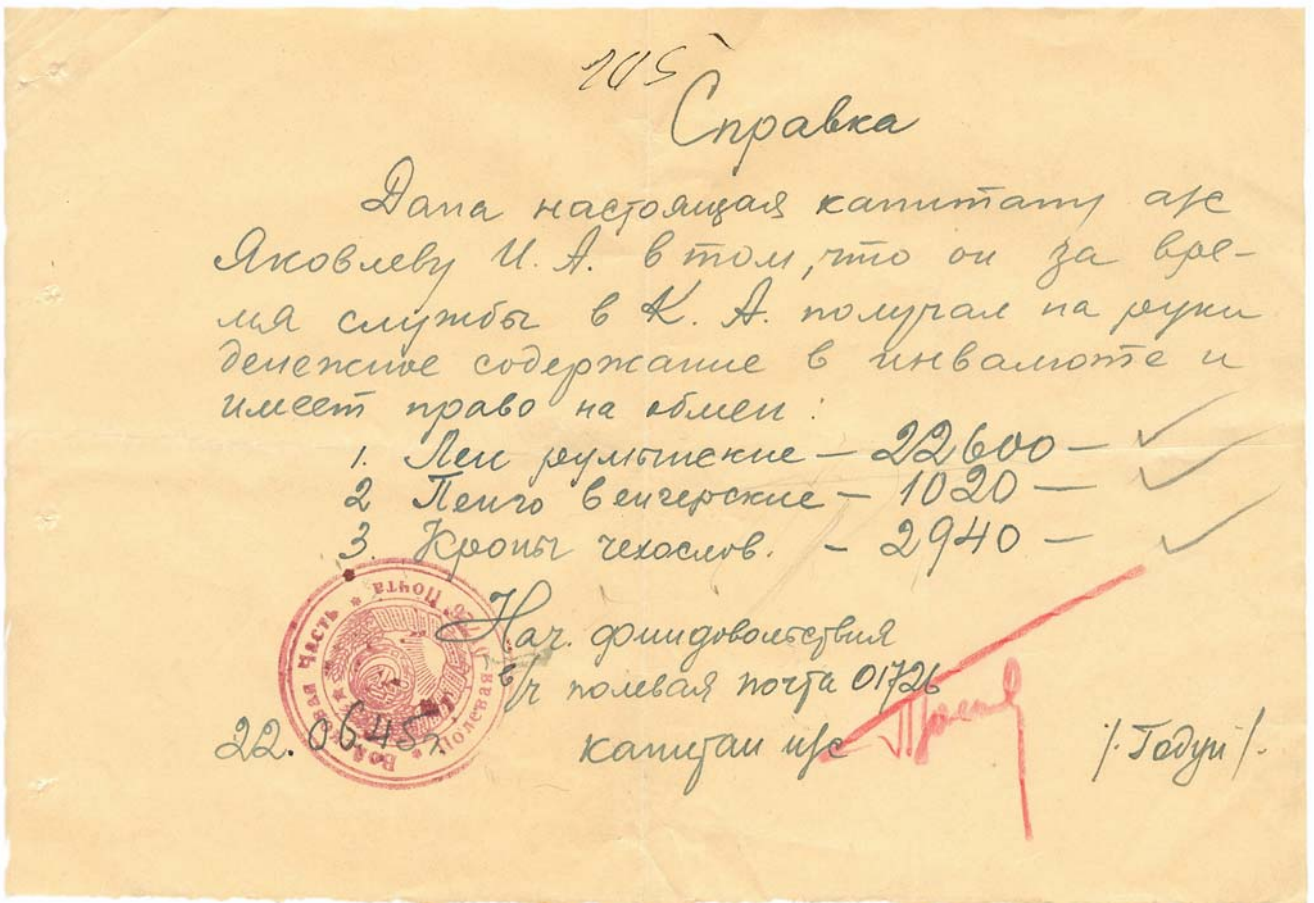 105
Справка
Дана настоящая капитану а/с
Яковлеву И. А. в том, что он за вре-
мя службы в К. А. получал на руки
денежное содержание в инвалюте и
имеет право на обмен:
1. Леи румынские – 22600 –
2 Пенго венгерские – 1020 –
3. Кроны чехослов. – 2940 –
Нач. финдовольствия
в/ч полевая почта 01726
22.06.45г капитан и/с /. Годун /.
Войсковая часть * Полевая Почта * 01726